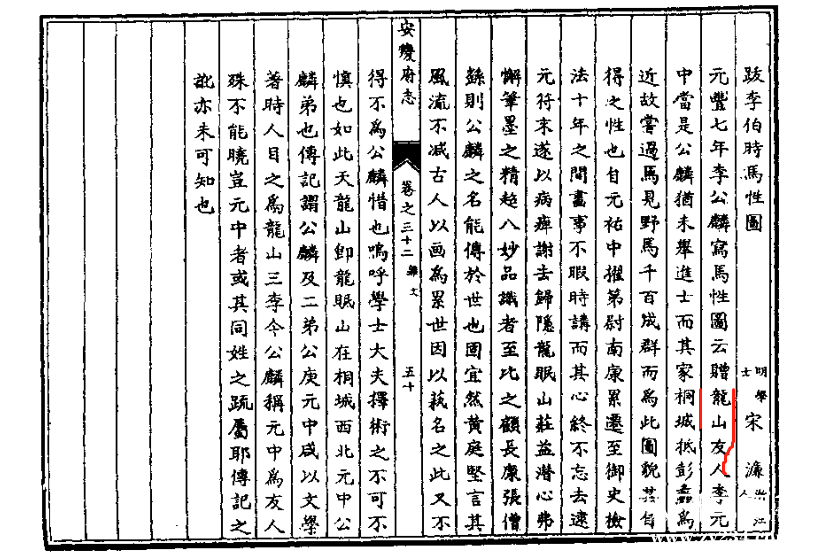 跋李伯時馬性圖 明學士 宋濂
元豐七年李公麟寫馬性圖云贈龍山友人李元
中當是公麟猶未舉進士而其家桐城抵彭蠡為
近故嘗過馬見野馬千百成群而為此圖貌其自
得之性也自元祐中擢第尉南康累遷至御史檢
法十年之間畫事不暇時講而其心終不忘去逮
元符末遂以病痺謝去歸隱龍眠山莊益潛心弗
懈筆墨之精超八妙品識者至比之顧長康張僧
繇則公麟之名能傳於世也固宜然黃庭堅言其
風流不减古人以画為累世因以藝名之此又不
安慶府志 卷之三十二 藝文 五十
得不為公麟惜也嗚呼學士大夫擇術之不可不
慎也如此天龍山卽龍眠山在桐城西北元中公
麟弟也傳記謂公麟及二弟公庚元中咸以文學
著時人目之為龍山三李今公麟稱元中為友人
殊不能曉豈元中者或其同姓之疏屬耶傳記之
訛亦未可知也